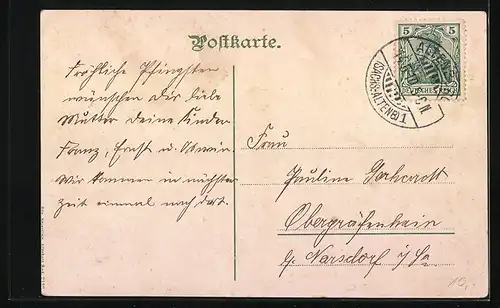 Postkarte.
Fröhliche Pfingsten
wünschen Dir liebe
Mutter deine Kinder
Franz, Ernst u.
Wir kommen in nächster
Zeit einmal nach dort.
5 5
DEUTSCHES
ALTENB
(SACHS.-ALTENB.) 1
Frau
Pauline
Obergräfenhain
b/ Narsdorf i/Sa
10,-